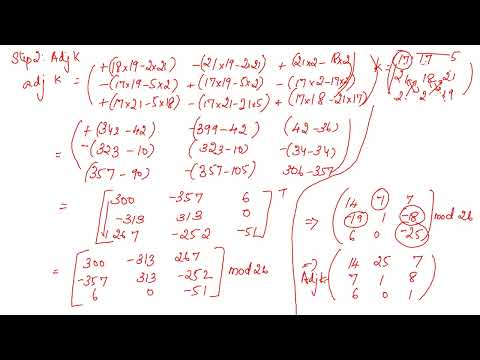 Step2: Adj K
adj K = ( +(18x19-2x21) -(21x19-2x21) +(21x2-18x2)
-(17x19-5x2) +(17x19-5x2) -(17x2-17x2)
+(17x21-5x18) -(17x21-21x5) +(17x18-21x17) )
K = ( 17 17 5
21 18 21
2 2 19 )
= ( +(342-42) -(399-42) (42-36)
-(323-10) (323-10) -(34-34)
(357-90) -(357-105) 306-357 )
= [ 300 -357 6
-313 313 0
267 -252 -51 ] T
= [ 300 -313 267
-357 313 -252
6 0 -51 ] mod 26
⇒ ( 14 -1 7
-19 1 -18
6 0 -25 ) mod 26
⇒ Adj K = ( 14 25 7
7 1 8
6 0 1 )